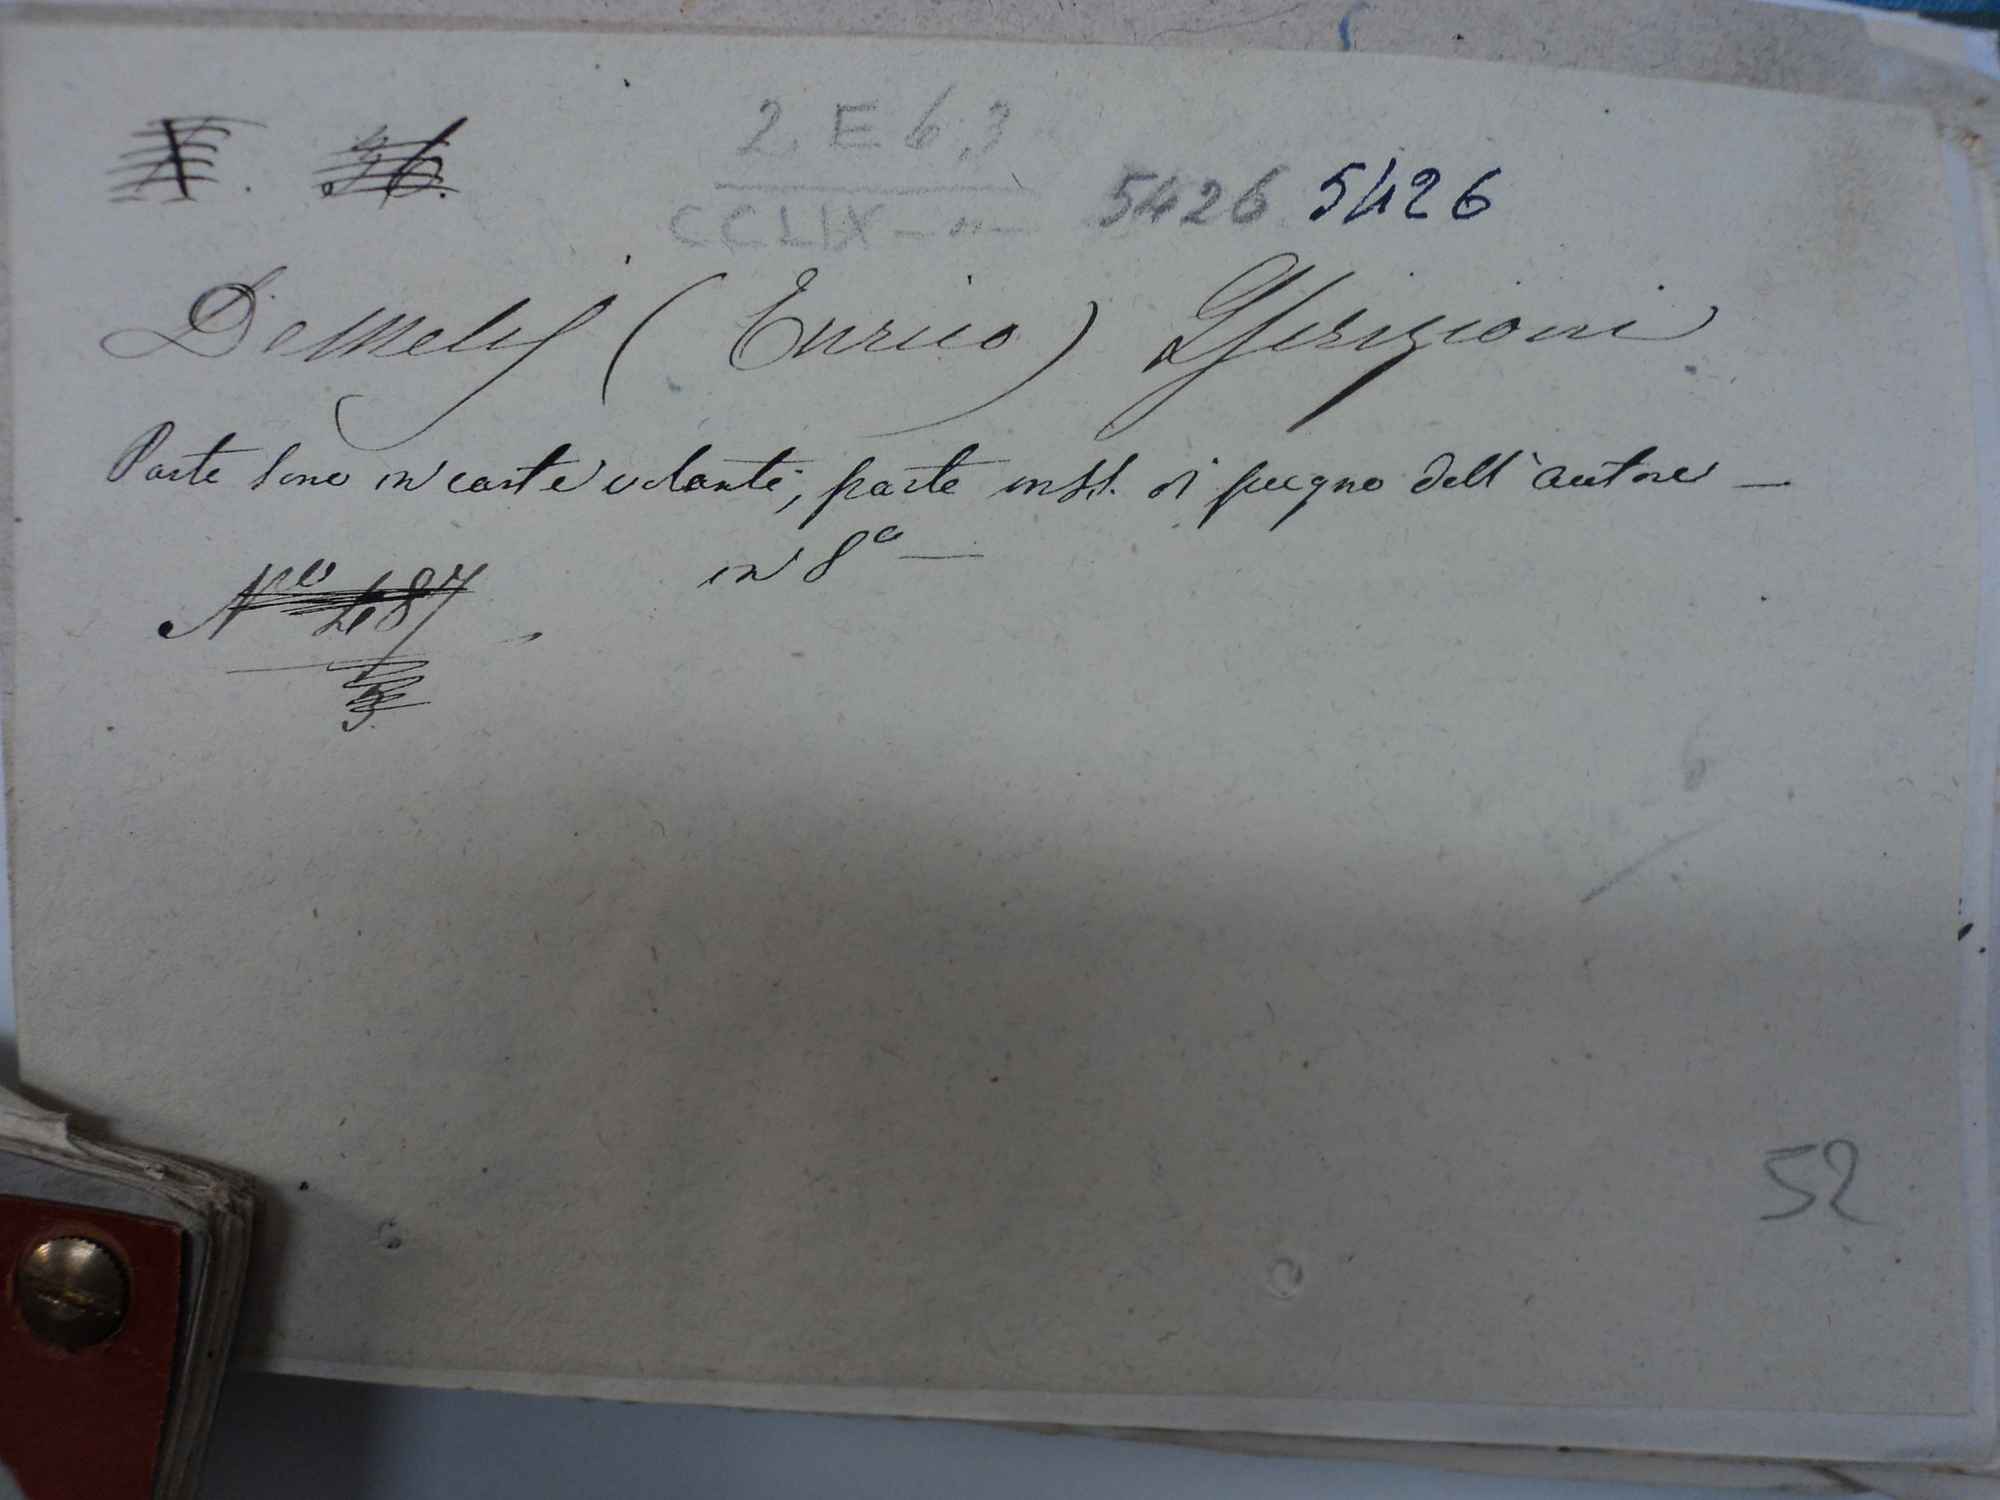 2 E 6.3
CCLIX - " - 5426 5426
De Melis (Enrico) Iscrizioni
Parte sono in carte volanti, parte mss. di pugno dell'autore —
in 8° —
No 487
6
52